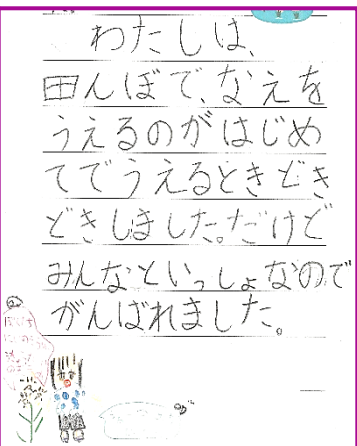 わたしは、
田んぼで、なえを
うえるのがはじめ
てでうえるときどき
どきしました。だけど
みんなといっしょなので
がんばれました。